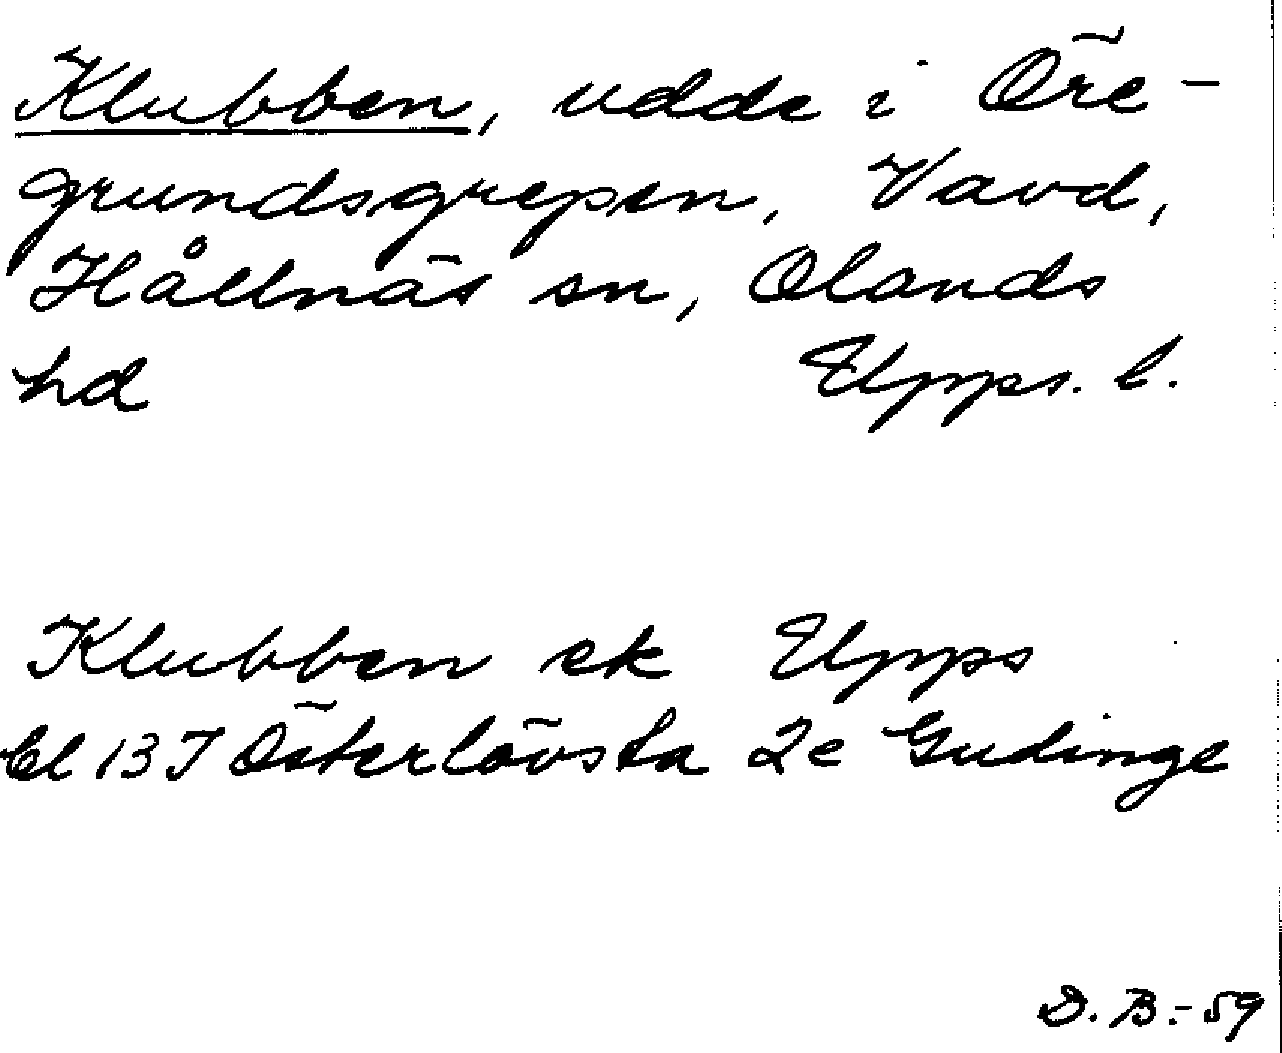 Klubben, udde i Öre-
grundsgrepen, Vavd,
Hållnäs sn, Olands
hd Upps. l.
Klubben ek Upps
bl 13 I Österlövsta 2e Gudinge
D. B. - 59